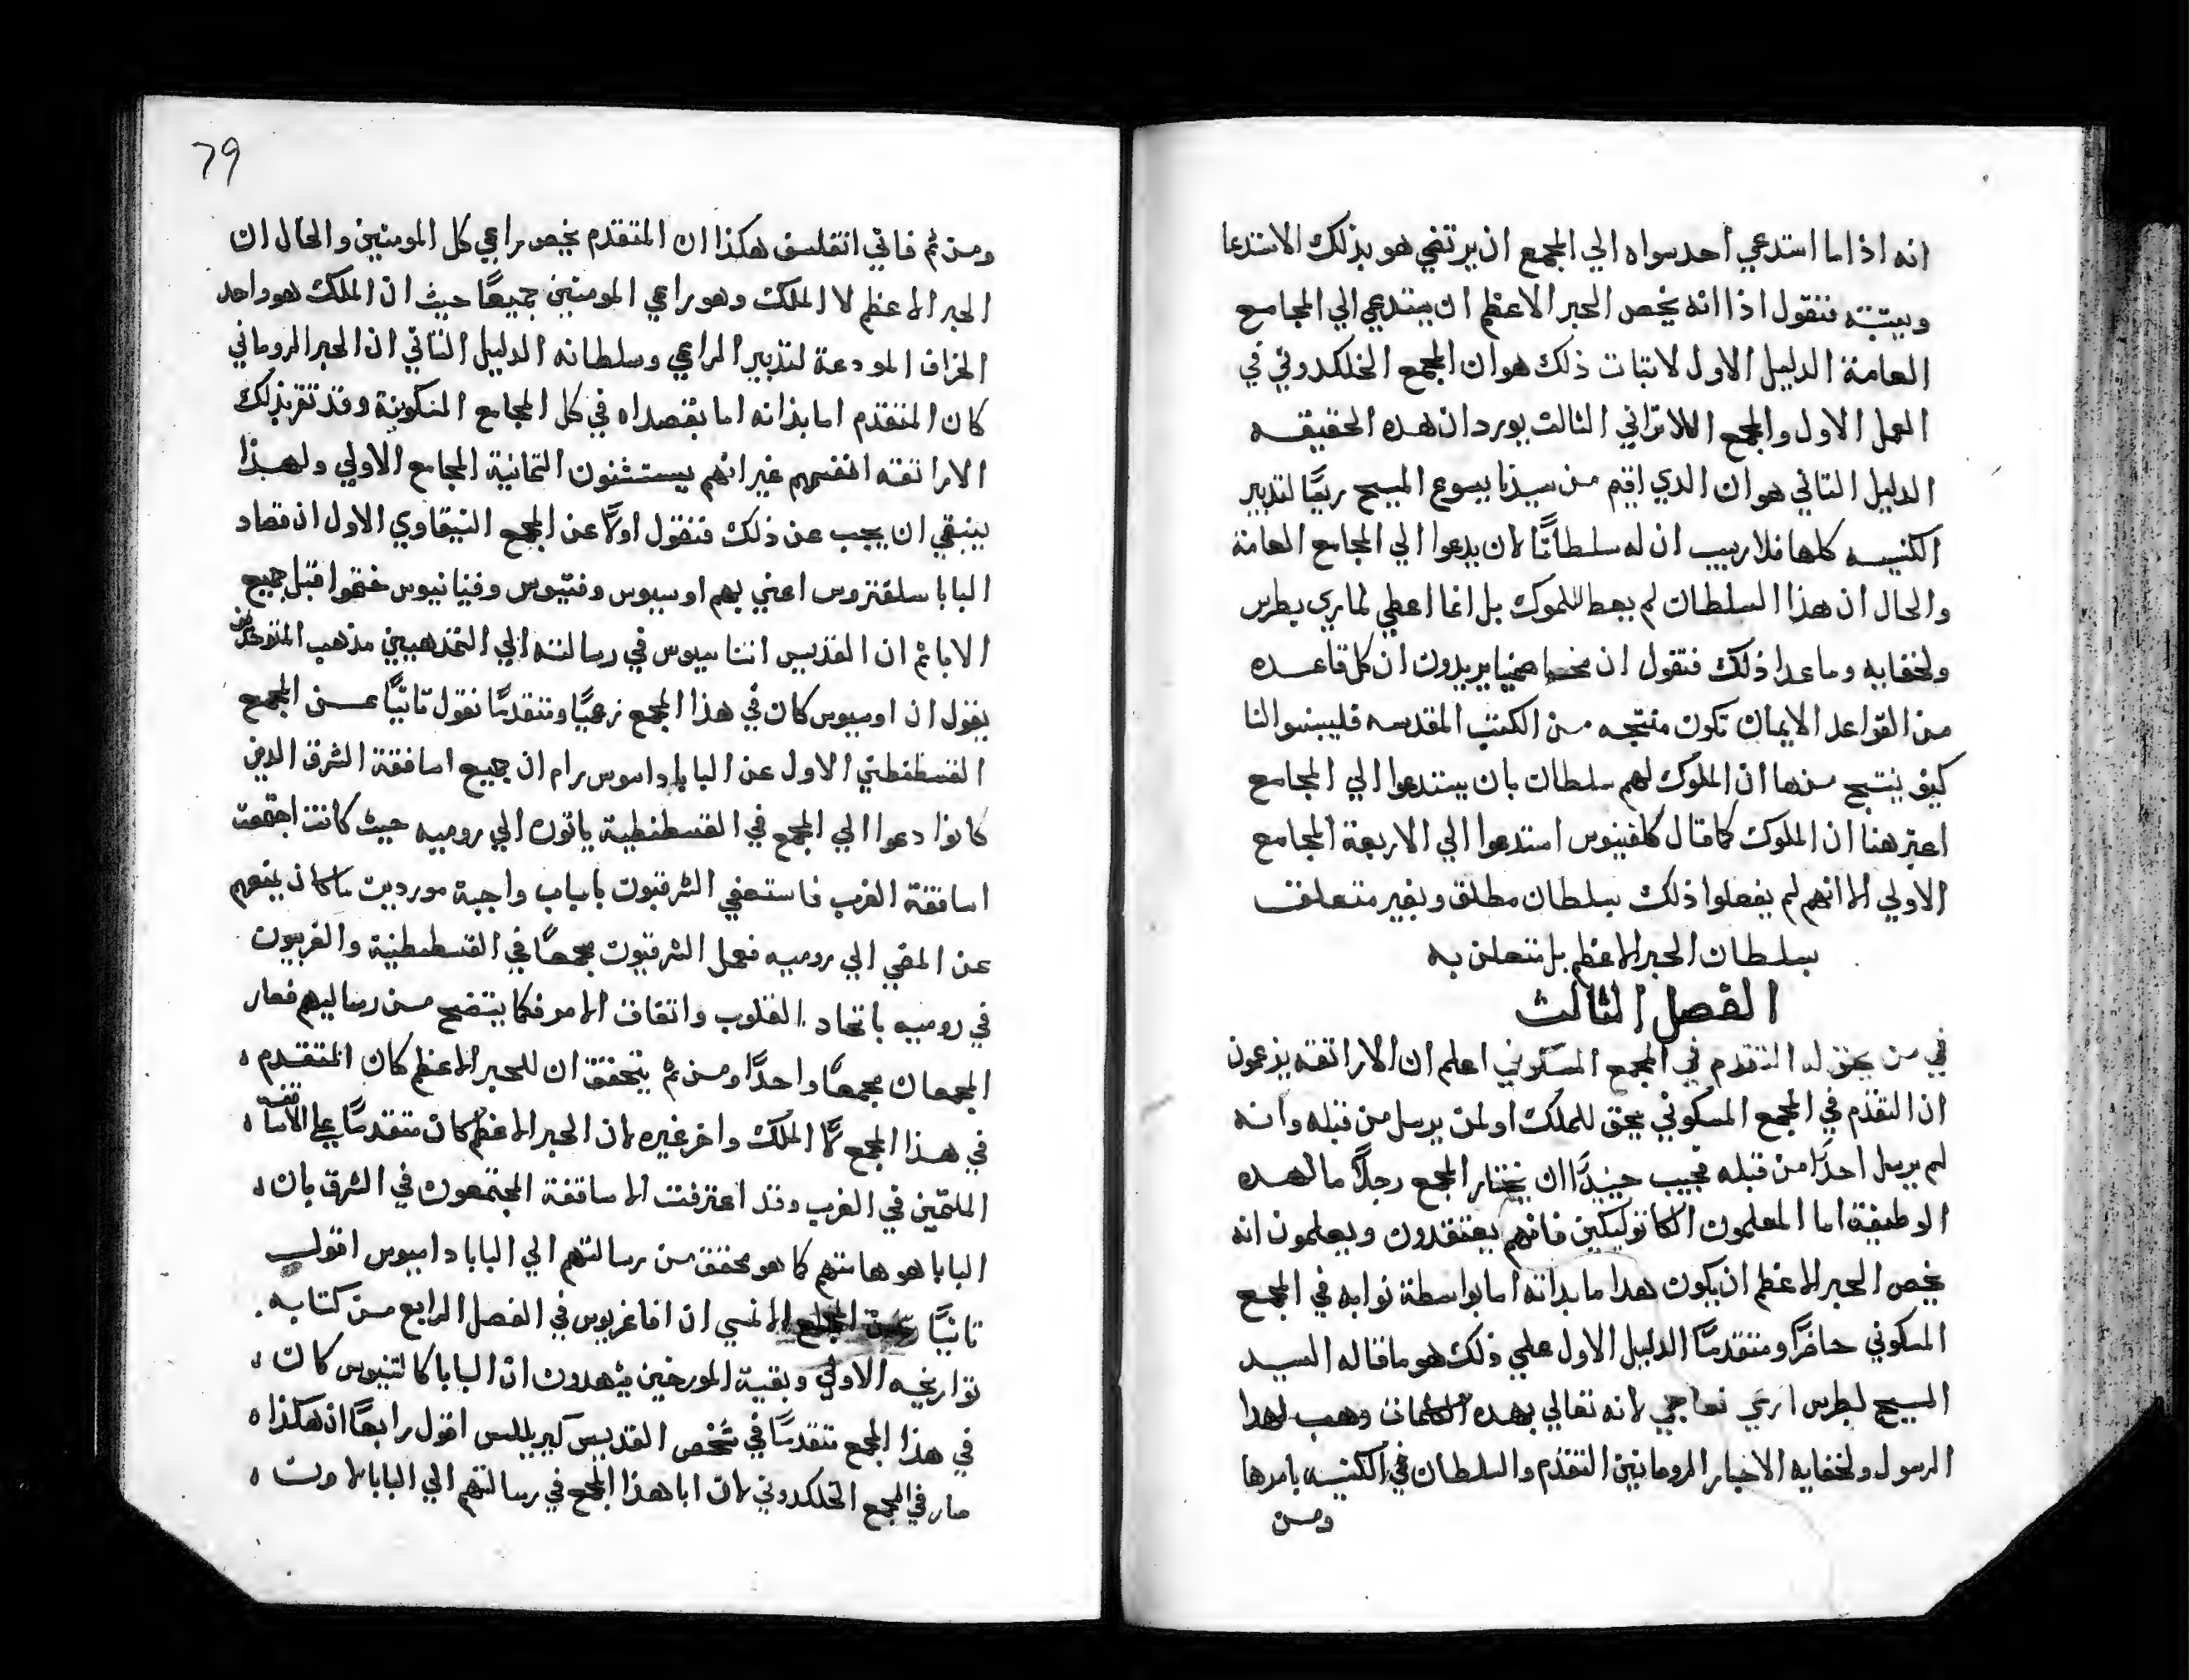 انه اذا ما استدعي احد سواه الي المجمع ان يرتضي هو بذلك الاستدعا
ويثبته فنقول اذا انه يخص الحبر الاعظم ان يستدعي الي المجامع
العامة الدليل الاول لاتبات ذلك هو ان المجمع الخلكدوني في
العمل الاول والمجمع اللاتراني الثالث يورد ان هده الحقيقه
الدليل التاني هو ان الدي اقيم من سيدنا يسوع المسيح ريسًا لتدبير
الكنيسه كلها فلا ريب ان له سلطانًا لان يدعوا الي المجامع العامة
والحال ان هذا السلطان لم يعط للملوك بل انما اعطي لماري بطرس
ولخفايه وما عدا ذلك فنقول ان يريدون ان كل قاعده
من القواعد الايمان تكون منتجه من الكتب المقدسه فليبينوا لنا
كيف ينتج منها ان الملوك لهم سلطان بان يستدعوا الي المجامع
اعتبر هنا ان الملوك كما قال كلفينوس استدعوا الي الاربعة المجامع
الاولي الا انهم لم يفعلوا ذلك بسلطان مطلق وبغير متعلق
بسلطان الحبر الاعظم بل متعلق به
الفصل الثالث
في من يحق له التقدم في المجمع المسكوني اعلم ان الاراتقه يزعمون
ان التقدم في المجمع المسكوني يحق للملك او لمن يرسل من قبله وانه
لم يرسل احدًا من قبله فيجيب حينيدًا ان يختار المجمع رجلًا ما لهده
الوظيفة اما المعلمون الكاتوليكيين فانهم يعتقدون ويعلمون انه
يخص الحبر الاعظم ان يكون هدا ما بداته اما بواسطة نوابه في المجمع
المسكوني حاضرًا ومتقدمًا الدليل الاول علي ذلك هو ما قاله السيد
المسيح لبطرس ارعي نعاجي لانه تعالي بهده الكلمات وهب لهدا
الرسول ولخفايه الاحبار الرومانيين التقدم والسلطان في الكنيسه باسرها
ومن
79
ومن ثم فاني اتفلسف هكذا ان المتقدم يخص راعي كل المومنين والحال ان
الحبر الاعظم لا الملك وهو راعي المومنين جميعًا حيث ان الملك هو واحد
الخراف المودعة لتدبير الراعي وسلطانه الدليل التاني ان الحبر الروماني
كان المتقدم اما بذاته اما بقصداه في كل المجامع المسكونية وقد تقر بذلك
الاراتقه انفسهم غير انهم يستثنون التمانية المجامع الاولي ولهذا
ينبقي ان يجب عن ذلك فنقول اولًا عن المجمع النيقاوي الاول ان قصاد
البابا سلفتروس اعني بهم اوسيوس وفتيوس وفنيانيوس ختموا قبل جميع
الابا ثم ان القديس اتناسيوس في رسالته الي التمذهبين مذهب المتوحدين
يقول ان اوسيوس كان في هذا المجمع زعيًا ومتقدمًا نقول تانيًا عن المجمع
القسطنطني الاول عن البابا داماسوس رام ان جميع اساقفة الشرق الدين
كانوا دعوا الي المجمع في القسطنطية ياتون الي روميه حيث كانت اجتمعت
اساقفة الغرب فاستعفي الشرقيون باسباب واجبة موردين ما كان يمنعهم
عن المضي الي روميه فعمل الشرقيون مجمعًا في القسطنطنية والغربيون
في روميه باتحاد القلوب واتفاق الامر فكما يتضح من رسايلهم فصار
المجمعان مجمعًا واحدًا ومن ثم يتحقق ان للحبر الاعظم كان المتقدم
في هذا المجمع لا الملك واخر غيره لان الحبر الاعظم كان متقدمًا علي الاساقفه
الملتمين في الغرب وقد اعترفت الاساقفة المجتمعون في الشرق بان
البابا هو هامتهم كما هو محقق من رسالتهم الي البابا داميوس اقول
تانيًا عن المجمع الافسسي ان افاغريوس في الفصل الرابع من كتابه
تواريخه الاولي وبقية المورخين يشهدون ان البابا كالتنيوس كان
في هذا المجمع متقدمًا في شخص القديس كيريللس اقول رابعًا ان هكذا
صار في المجمع الخلكدوني لان ابا هذا المجمع في رسالتهم الي البابا لاون